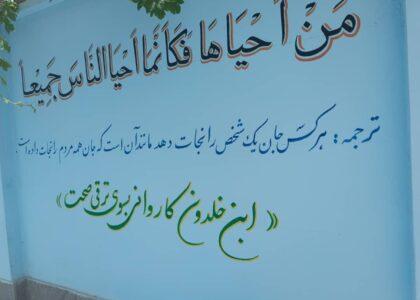 مَنْ اَحْيَاهَا فَكَاَنَّمَا اَحْيَا النَّاسَ جَمِيْعاً
ترجمه: هر کس جان یک شخص را نجات دهد مانند آن است که جان همه مردم را نجات داده است
«ابن خلدون کاروانی بسوی ترقی صحت»